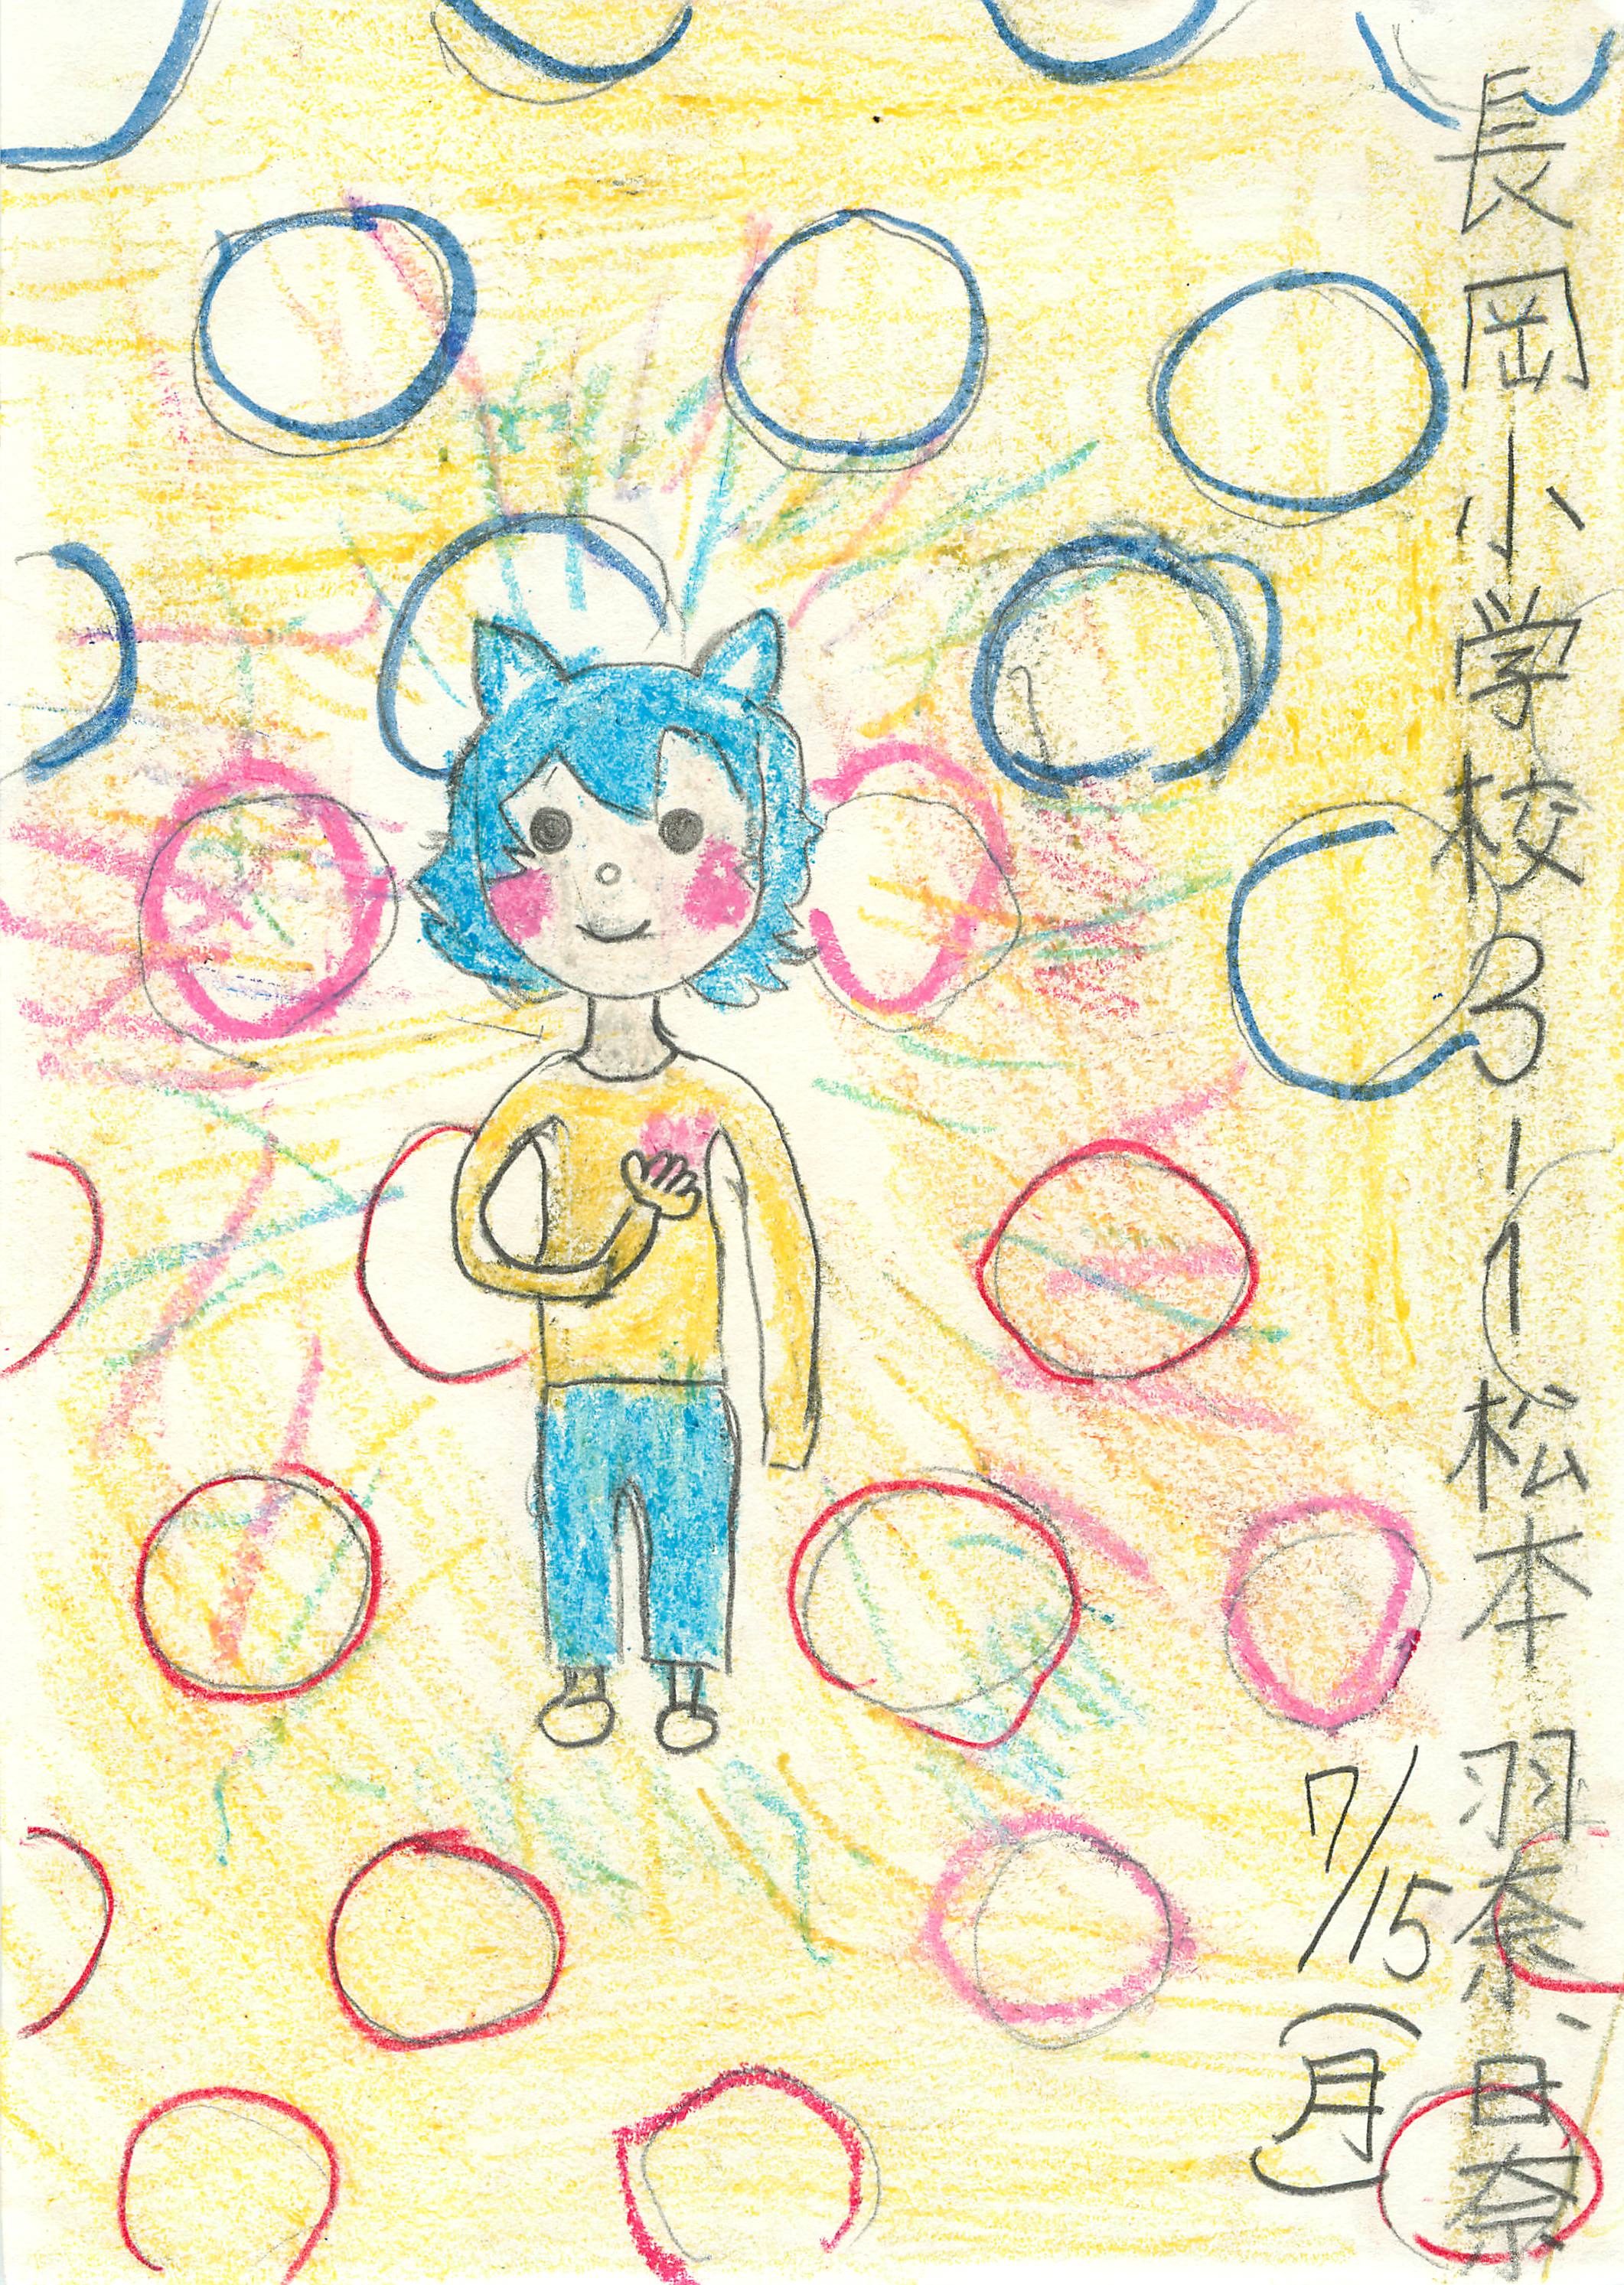 長岡小学校3-1松本 羽奈、日奈
7/15(月)